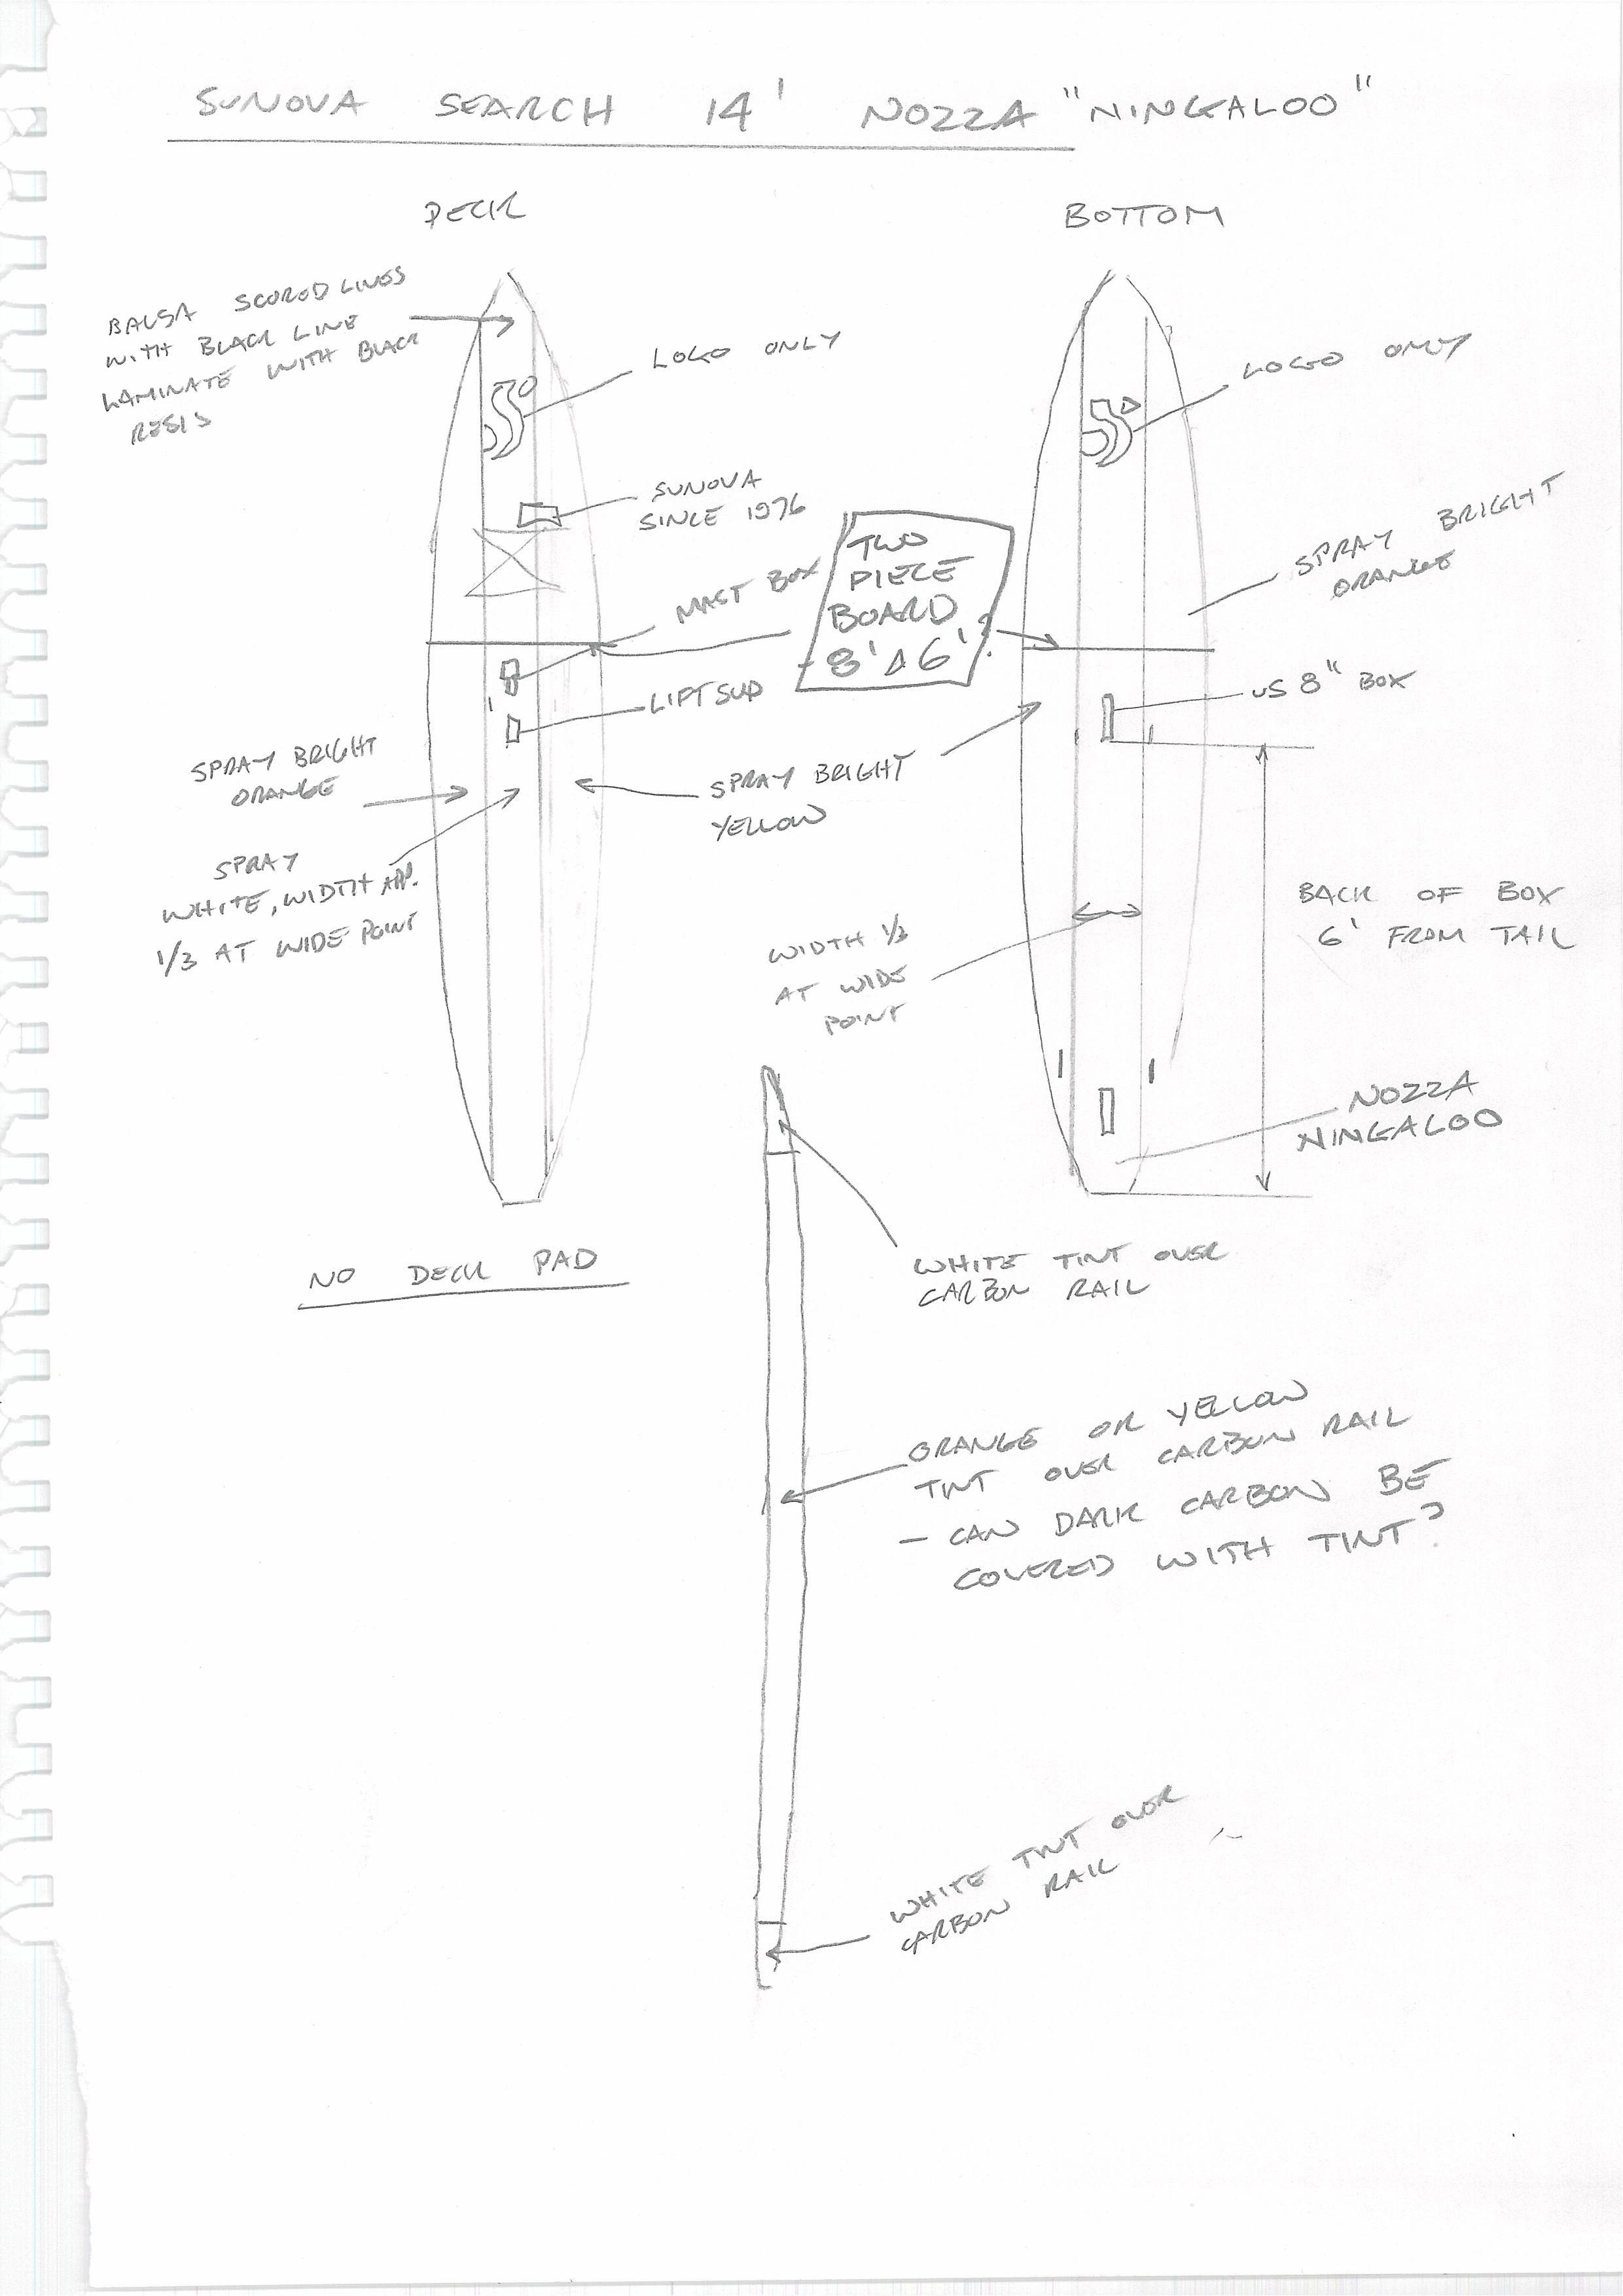 SUNOVA SEARCH 14' NOZZA "NINGALOO"
DECK
BOTTOM
BALSA SCORED LINES
WITH BLACK LINE
LAMINATE WITH BLACK
RESIN
LOGO ONLY
LOGO ONLY
SUNOVA
SINCE 1976
SPRAY BRIGHT
ORANGE
MAST BOX
TWO
PIECE
BOARD
8' & 6'?
LIFTSUP
US 8" BOX
SPRAY BRIGHT
ORANGE
SPRAY BRIGHT
YELLOW
SPRAY
WHITE, WIDTH APP.
1/3 AT WIDE POINT
BACK OF BOX
6' FROM TAIL
WIDTH 1/3
AT WIDE
POINT
NOZZA
NINGALOO
NO DECK PAD
WHITE TINT OVER
CARBON RAIL
ORANGE OR YELLOW
TINT OVER CARBON RAIL
- CAN DARK CARBON BE
COVERED WITH TINT?
WHITE TINT OVER
CARBON RAIL